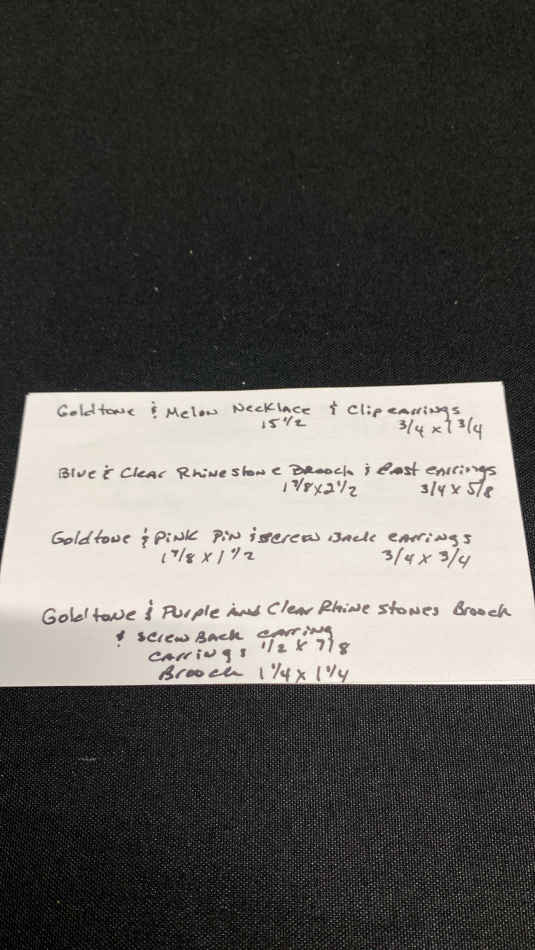 Goldtone & Melon Necklace & Clip earrings
15 1/2 3/4 x 1 3/4
Blue & Clear Rhinestone Brooch & earrings
x 2 1/2 3/4 x 5/8
Goldtone & Pink Pin & screw Back earrings
1 7/8 x 1 1/2 3/4 x 3/4
Goldtone & Purple and Clear Rhine stones Brooch
& screw Back earring
earrings 1/2 x 7/8
Brooch 1 1/4 x 1 1/4